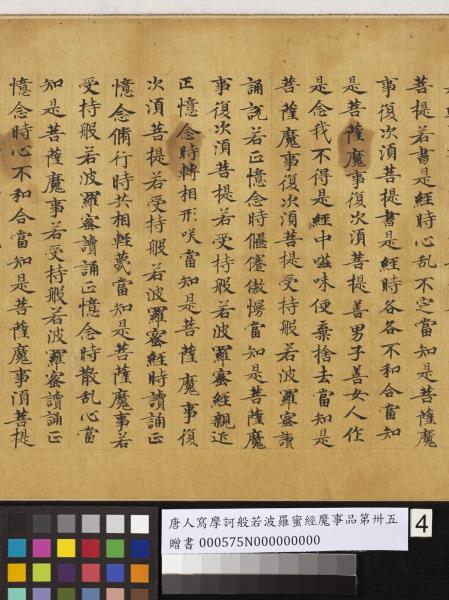 菩提若書是經時心乱不定當知是菩薩魔
事復次湏菩提書是經時各各不和合當知
是菩薩魔事復次湏菩提善男子善女人作
是念我不得是經中滋味便棄捨去當知是
菩薩魔事復次湏菩提受持般若波羅蜜讀
誦說若正憶念時偃蹇傲慢當知是菩薩魔
事復次湏菩提若受持般若波羅蜜經親近
正憶念時轉相形咲當知是菩薩魔事復
次湏菩提若受持般若波羅蜜經時讀誦正
憶念脩行時共相輕蔑當知是菩薩魔事若
受持般若波羅蜜讀誦正憶念時散乱心當
知是菩薩魔事若受持般若波羅蜜讀誦正
憶念時心不和合當知是菩薩魔事湏菩提
唐人寫摩訶般若波羅蜜經魔事品第卅五
贈書 000575N000000000
4